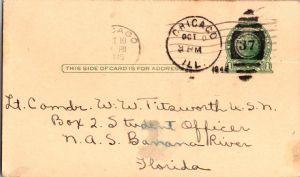 CHICAGO
OCT
9 PM
ILL.
1945
37
THIS SIDE OF CARD IS FOR ADDRESS
Lt. Comdr. W. W. Titsworth U.S.N.
Box 2. Student Officer
N.A.S. Banana River
Florida